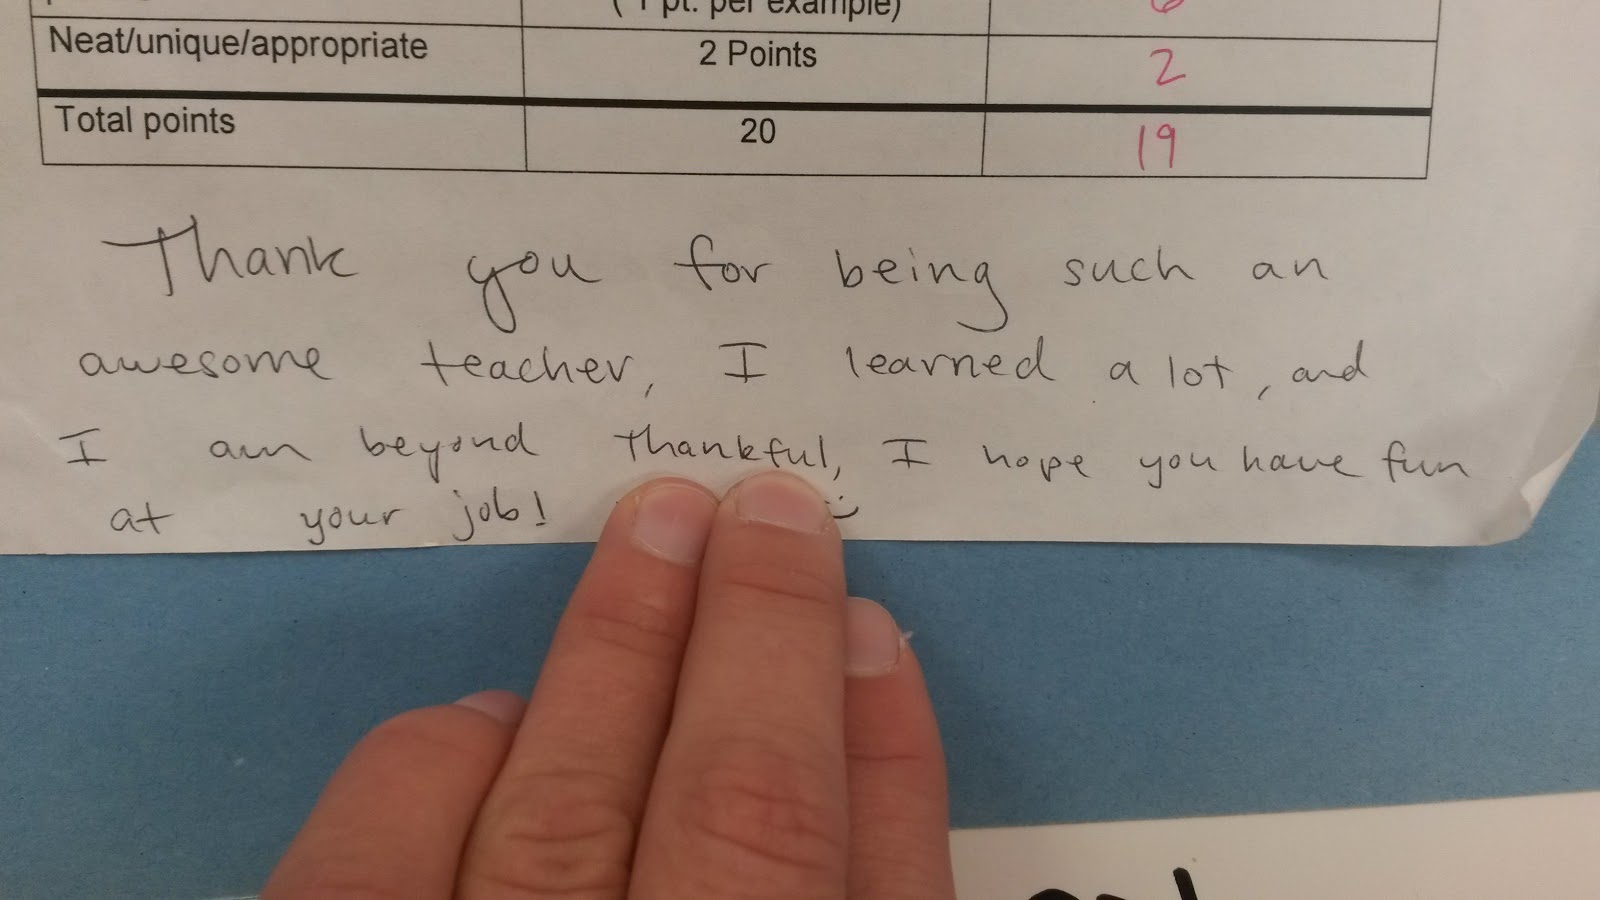 ( 1 pt. per example) 6
Neat/unique/appropriate 2 Points 2
Total points 20 19
Thank you for being such an
awesome teacher, I learned a lot, and
I am beyond thankful, I hope you have fun
at your job! :)